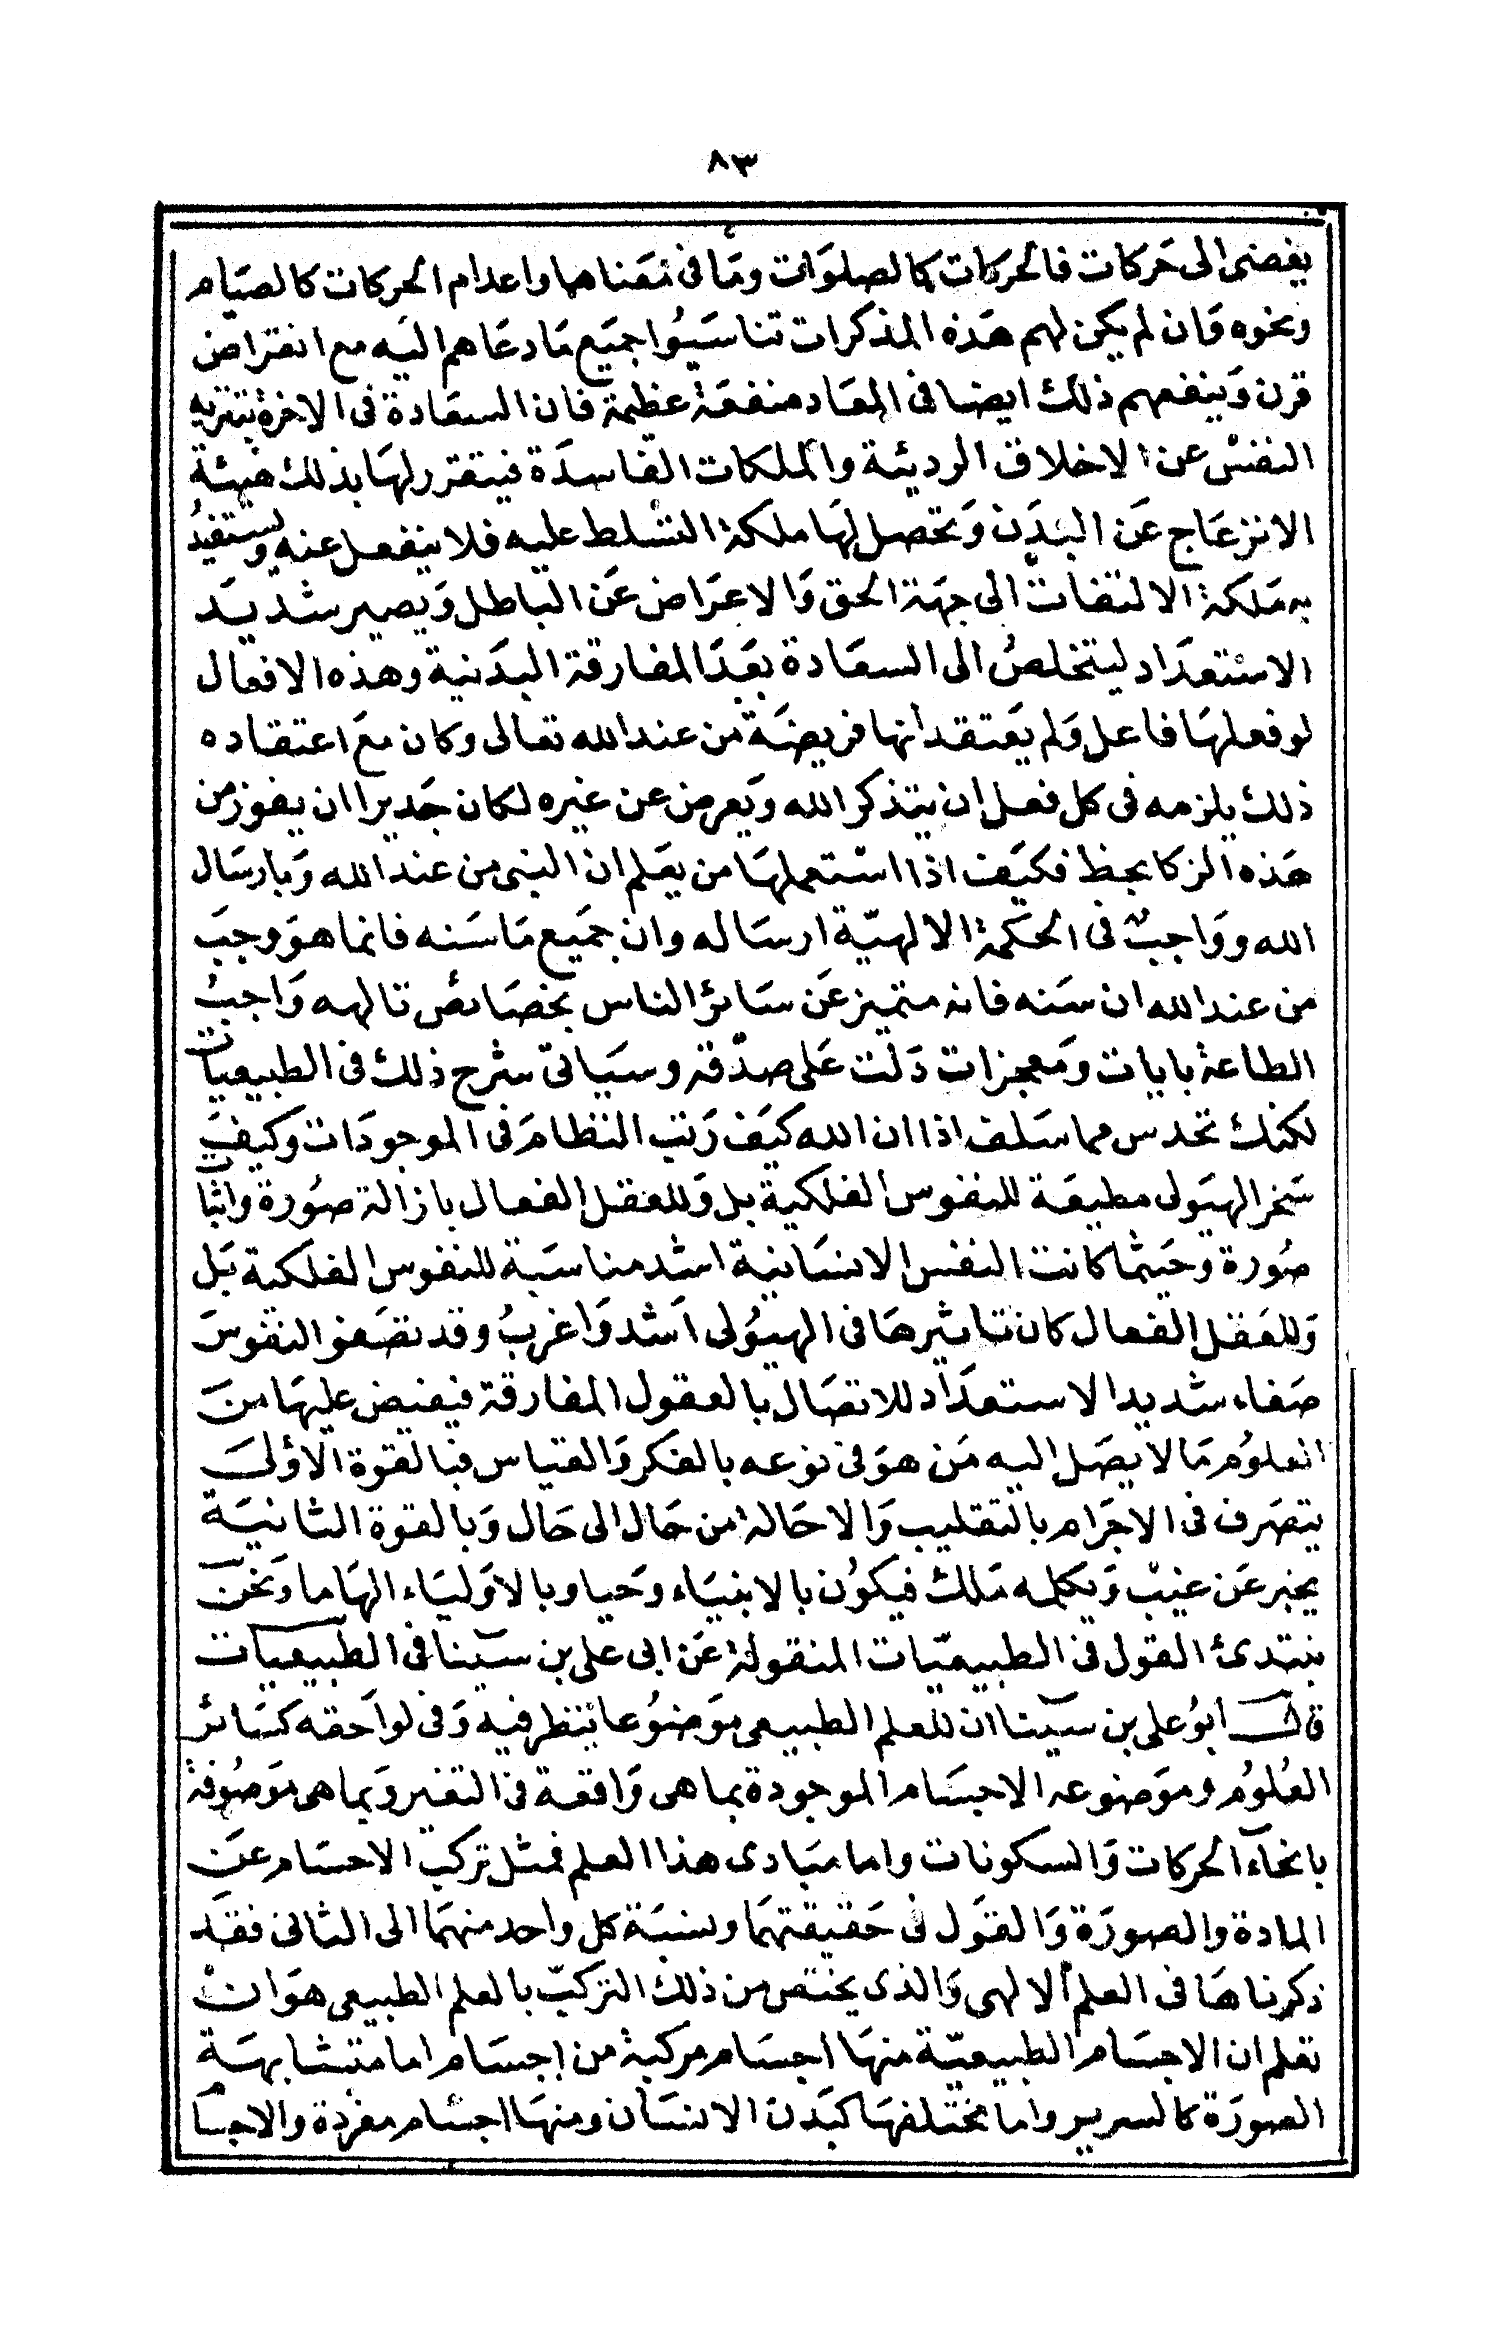 ٨٣
يفضى الى حَركات فالحركات كالصلوَات ومَا فى مَعناهما واعدام الحركات كالصيَام
ونحوه وَان لم يكن لهم هَذه المذكرات تناسَيوُا جميَع مَا دعَاهم اليَه مع انقراض
قرن وَينفعهم ذلك ايضا فى المعَاد منفعَة عظيمة فان السعَادة فى الاخرة بتنزيه
النفسْ عن الاخلاق الرديئة والملكات الفاسدَة فيتقرر لهَا بذلك هَيئة
الانزعَاج عَن البدَن وَتحصل لهَا ملكة التسَلط عليه فلا ينفعل عنه وتستفيدُ
به مَلكة الالتفات الى جهَة الحق وَالاعرَاض عَن الباطل وَيصير شديدَ
الاسْتعدَاد ليتخلصُ الى السعَادة بعَدَ المفارقة البدَنية وهذه الافعال
لو فعلهَا فاعل وَلم يَعتقد انها فريضَة من عند الله تعالى وكان معَ اعتقاده
ذلك يلزمه فى كل فعل ان يتذكر الله وَيعرض عن غيره لكان جَديرا ان يفوز من
هَذه الزكا بحظ فكيَف اذا اسْتعملهَا من يعَلم ان النبى من عند الله وَبارسَال
الله ووَاجبٌ فى الحَكمة الالهيّة ارسَاله وان جميَع مَا سَنه فانما هوَ وجبَ
من عند الله ان سَنه فانه متميز عَن سَائر الناس بخصَائص تالهه وَاجبُ
الطاعة بايات ومَعجزات دَلت عَلى صدّقه وسيَاتى شرح ذلك فى الطبيعيات
لكنك تحدس مما سَلف اذا ان الله كيَف رَتب النظامَ فى الموجودَات وكيفَ
سَخر الهيَولى مطيعَة للنفوس الفلكية بل وَللعقل الفعال بازالة صوُرة واثبا
صوُرة وحَيثما كانت النفس الانسَانية اشد مناسَبة للنفوس الفلكية بَل
وَللعَقل الفعال كان تاثيرهَا فى الهيوُلى اَشد وَاغربُ وقد تصَفو النفوسَ
صَفاء شَديدا لاستعدَاد للاتصَال بالعقول المفارقة فيفيض عليهَا منَ
العلوُم مَا لا يصَل اليه مَن هوَ فى نوعه بالفكر وَالقياس فبالقوة الاُولى
يتصَرف فى الاجرَام بالتقليب وَالاحَالة من حَال الى حَال وَبالقوة الثانيَة
يخبر عَن غيبْ وَيكلمه مَلك فيكوُن بالانبيَاء وحَيا وبالاَوليَاء الهَاما وَنحن
نبتدئ القول فى الطبيعيّات المنقولة عَن ابى على بن سينا فى الطبيعيات
قال ابوُ على بن سينا ان للعلم الطبيعى موَضوُعا ينظر فيه وَفى لواَحقه كسَائر
العُلوُم وموَضوعه الاجسَام الموجودة بما هى وَاقعة فى التغير وَبما هى موَصوُفة
بانحآء الحركات وَالسكونات واما مبَادى هذا العلم فمثل تركب الاجسَام عَن
المادة والصورَة وَالقوَل فى حَقيقتهمَا ونسبَة كل واحد منهمَا الى الثانى فقَد
ذكرناهَا فى العلم الالهى وَالذى يختص من ذلك التركبّ بالعلم الطبيعى هوَ انْ
تعلم ان الاجسَام الطبيعيّة منهَا اجسَام مركبة من اجسَام اما متشابهَة
الصورَة كالسرير واما مختلفهَا كبَدن الانسَان ومنهَا اجسَام مفرَدة والاجسا